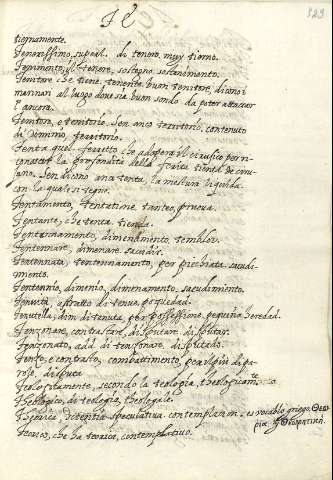 T E
323
tieramente.
Tenerissimo, superl. di tenero, muy tierno.
Tenimento, il tenere, sostegno, sostenimento.
Tenitore, che tiene, tenente. buon tenitore, dicono i
marinari al luogo dove sia buon fondo da poter attaccar
l'ancora.
Tenitoro, e tenitorio. Sen. anco territorio, contenuto
di Dominio, territorio.
Tenta quel ferretto che adopera il cirusico per ri-
conoscer la profondità della ferita tienta de ciru-
jano.
con la quale si
Tentamento, tentatione, tanteo, prueva.
Tentante, che tenta, tienta.
Tentennamento, dimenamento, temblor.
Tentennare, dimenare, sacudir.
Tentennata, tentennamento, per picchiata. sacudi-
miento.
Tentennio, dimenio, dimenamento, sacudimiento.
Tenuità, astratto di tenue, poquedad.
Tenutella, dim. di tenuta, per possessione, pequeña heredad.
Tenzonare, contrastare, disputare, disputar.
Tenzonato, add. da tenzonare, disputado.
Tenzone, contrasto, combattimento, per il più di pa-
role, disputa
Teologicamente, secondo la teologia, theologicamte
Theologico, di teologia, theologale.
Theorica, scientia speculativa, contemplacion. es vocablo griego
Teorico, che ha teorica, contemplativo.